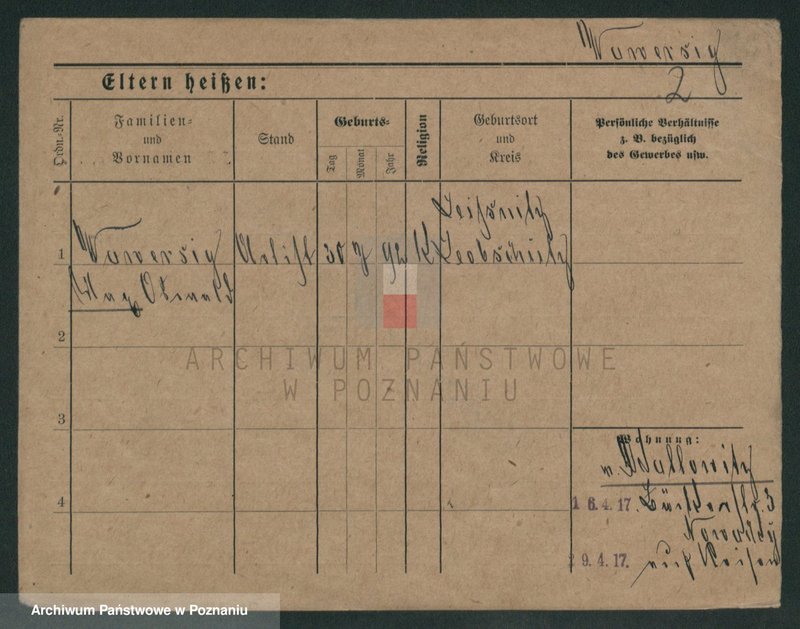 Wowersig
2
Eltern heißen:
Ordn.-Nr.
Familien-
und
Vornamen
Stand
Geburts-
Tag
Monat
Jahr
Religion
Geburtsort
und
Kreis
Persönliche Verhältnisse
z. B. bezüglich
des Gewerbes usw.
Leisnitz
1 Wowersig Artist 30 7 92 K Leobschütz
Max Oswald
2
ARCHIWUM PAŃSTWOWE
W POZNANIU
3
Wohnung:
v.
4
16.4.17. Bäckerstr. 3
19.4.17. auf Reisen
Archiwum Państwowe w Poznaniu